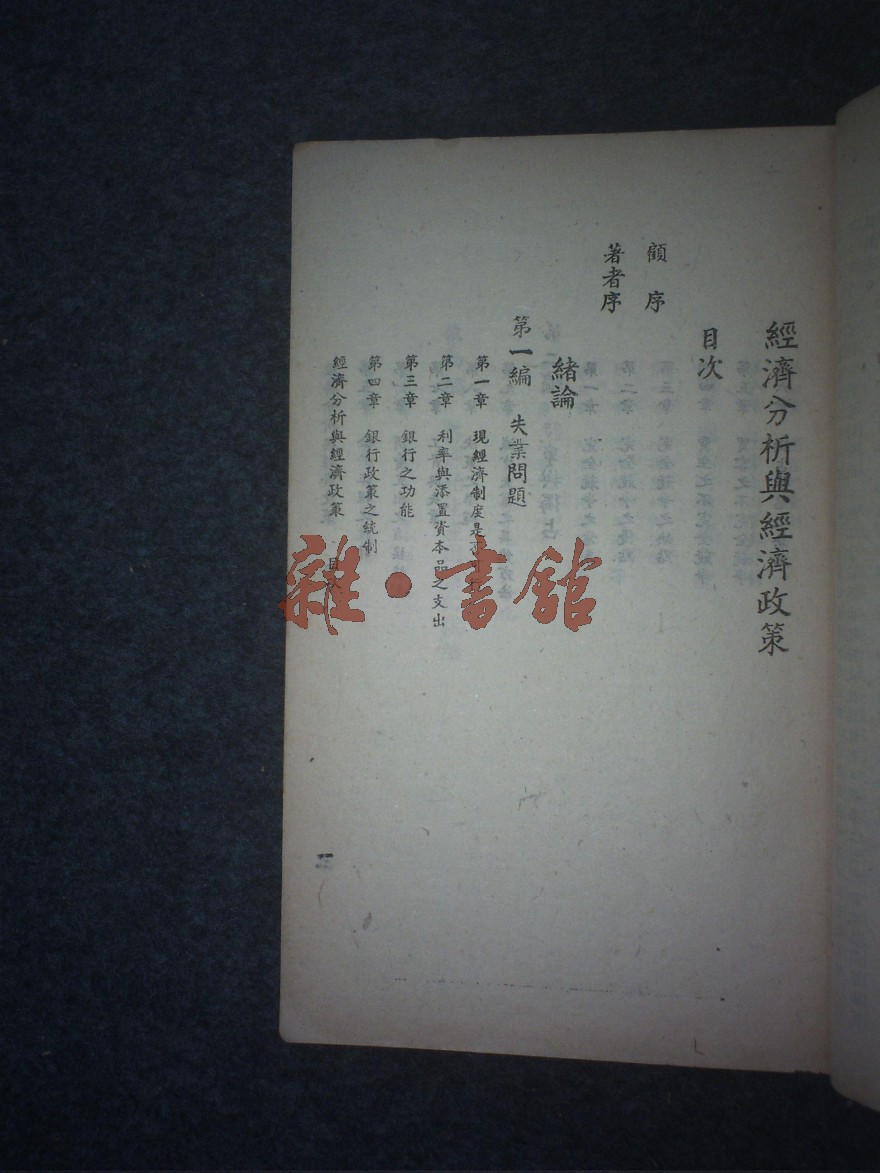 經濟分析與經濟政策
目次
顧 序
著者序
緒論
第一編 失業問題
第一章 現經濟制度是否
第二章 利率與添置資本品之支出
第三章 銀行之功能
第四章 銀行政策之統制
經濟分析與經濟政策 目
雜·書館